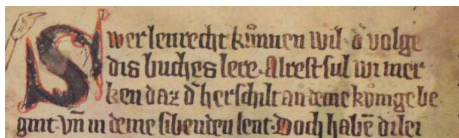 Swer lenrecht kůnnen wil · d' volge
dis buches lere · Alrest sul wi mer
ken daz d' herschilt an deme kůnige be
gint · vn̄ in deme sibenden lent · Doch habē di lei